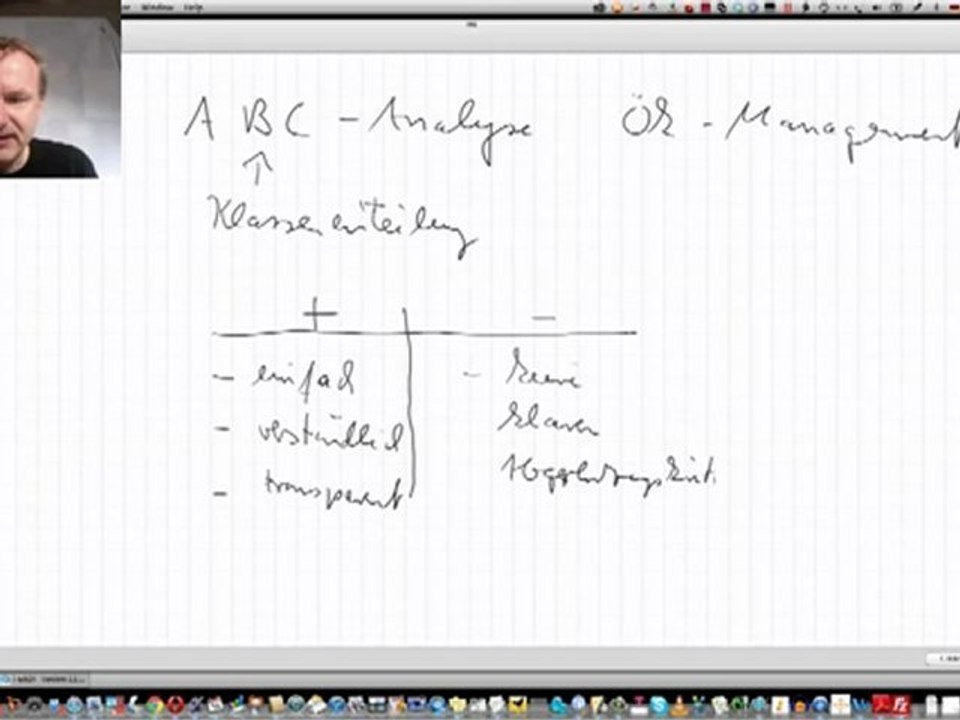 Window Help
ABC - Analyse Ök - Management
Klasseneinteilung
+ -
- einfach - keine
- verständlich klaren
- transparent